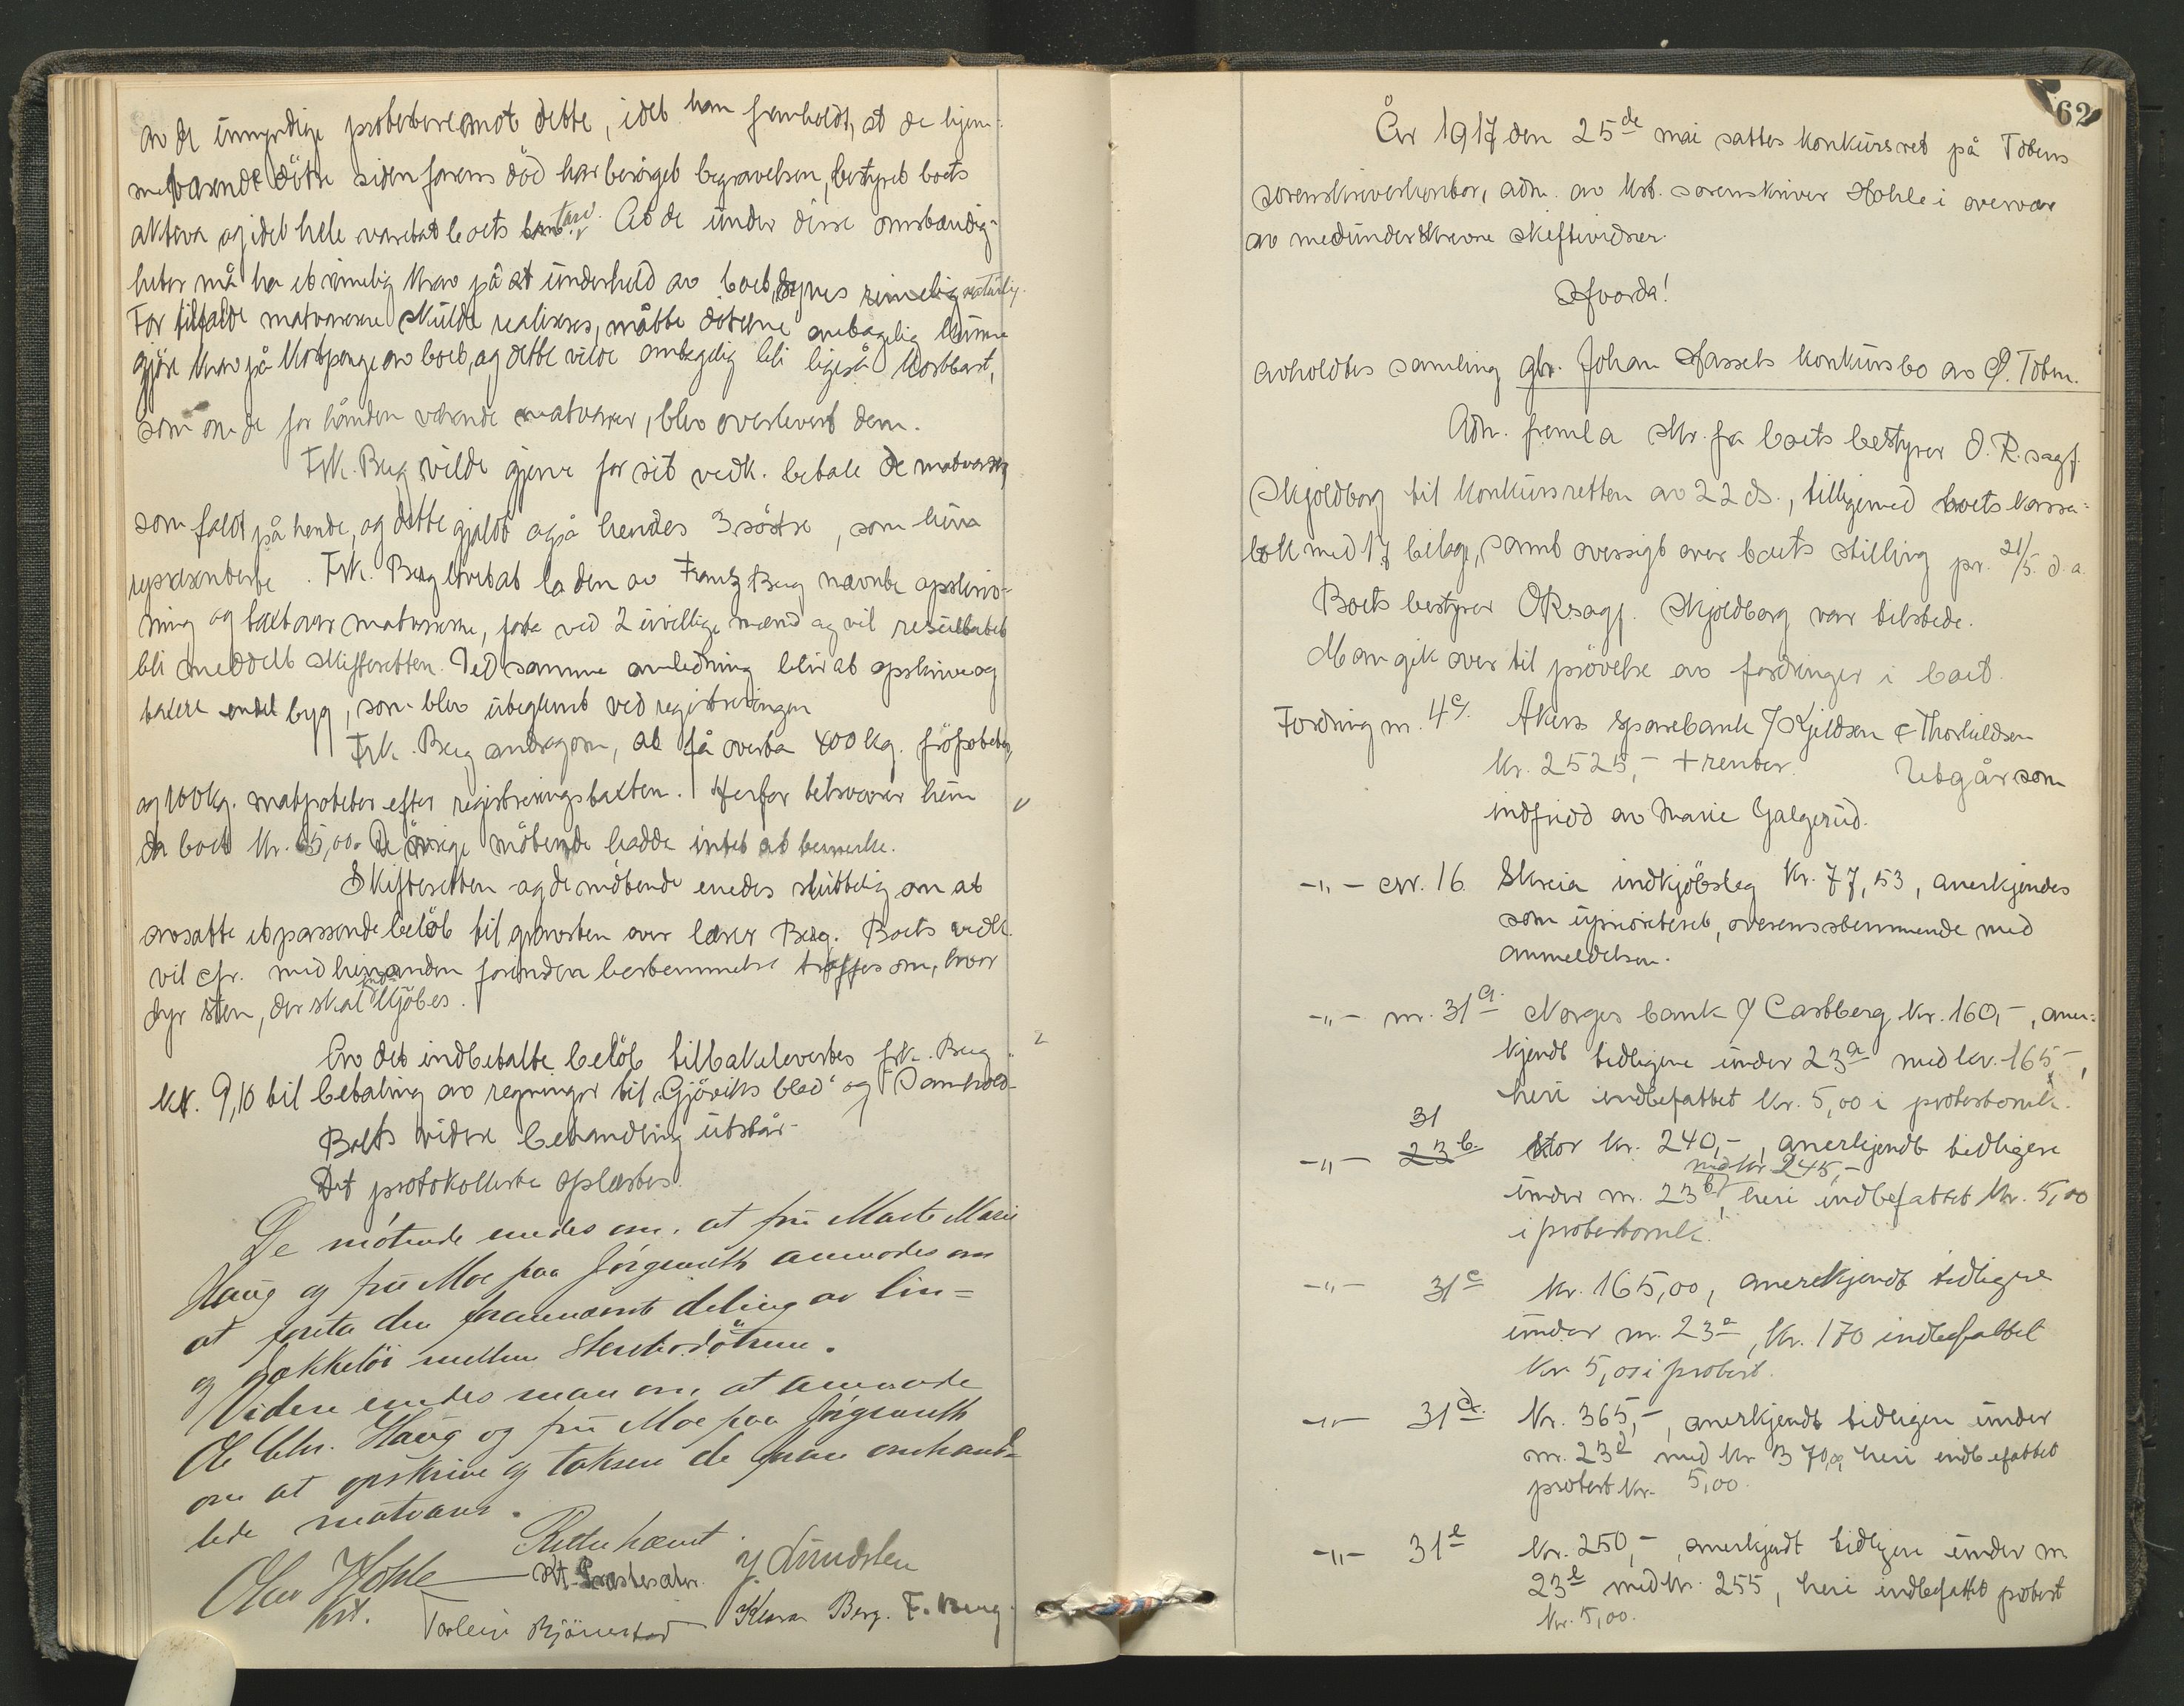 av de umyndige protesterer mot dette, idet han fremholdt, at de hjem-
meværende døtre siden farens död har besörget begravelsen, bestyret boets
aktiva og i det hele varetat boets tarv. At de under disse omstændig-
heter må ha et rimelig krav på at underhold av boet, synes rimelig naturlig.
For tilfælde matvarerne skulde realiseres, måtte döterne antagelig kunne
gjöre krav på kostpenge av boet, og dette vilde antagelig bli ligeså kostbart,
som om de for hånden værende matvarer, blev overlevert dem.
Frk. Berg vilde gjerne for sit vedk. betale de matvarer,
som faldt på hende, og dette gjaldt også hendes 3 söstre, som hun
repræsenterte. Frk. Berg lovet at la den av Frantz Berg nævnte opskriv-
ning og takst over matvarerne, foreta ved 2 uvillige mænd og vil resultatet
bli meddelt skifteretten. Ved samme anledning blir at opskrive og
taksere endel byg, som blev utegl���mt ved registreringen
Frk. Berg androg om, at få overta 400 kg. fröpoteter,
og 100 kg. matpoteter efter registreringstaksten. Herfor tilsvarer hun
da boet kr. 65,00. De övrige mötende hadde intet at bemerke.
Skifteretten og de mötende enedes sluttelig om at
avsatte et passende belöb til gravsten over lærer Berg. Boets vedk.
vil cfr. med hinanden forinden bestemmelse træffes om, hvor
dyr sten, der skal indkjöbes.
Av det indbetalte belöb tilbakelevertes frk. Berg
kr. 9,10 til betaling av regninger til "Gjöviks blad" og "Samhold"
Boets videre behandling utstår.
Det protokollerte oplæstes.
De mötende enedes om, at fru Marte Marie
Haug og fru Moe paa Jörgentveth anmodes om
at foreta den forannævnte deling av lin=
og dækketöi mellem Sterbodötrene.
Videre enedes man om at anmode
Ole Chr. Haug og fru Moe paa Jörgentveth
om at opskrive og taksere de foran omhand=
lede matvarer.
Retten hævet
Olav Hohle
kst.
J. Lundsten
Torleiv Bjørnestad
Klara Berg. F. Berg.
62
År 1917 den 25de mai sattes konkursret på Totens
sorenskriverkontor, adm. av kst. sorenskriver Hohle i overvær
av medunderskrevne skiftevidner.
Hvorda!
avholdtes samling ang. Johan Hassels konkursbo av Ö. Toten.
Adm. fremla skr. fra boets bestyrer O. R. sagf.
Skjoldborg til konkursretten av 22 ds., tilligemed boets kassa-
bok med 17 bilage, samt oversigt over boets stilling pr. 21/5 d. a.
Boets bestyrer O R sagf. Skjoldborg var tilstede.
Man gik over til prövelse av fordringer i boet.
Fordring nr. 4c. Akers sparebank / Kjeldsen & Thorkildsen
kr. 2525,- + renter. Utgår som
indfridd av Marie Galgerud.
-„- nr. 16 Skreia indkjöbslag kr. 77,53, anerkjendes
som uprioritert, overensstemmende med
anmeldelsen.
-„- nr. 31a. Norges bank / Castberg kr. 160,-, aner-
kjendt tidligere under 23a med kr. 165,-,
heri indbefattet kr. 5,00 i protestomk.
31
-„- 23b. stor kr. 240,-, anerkjendt tidligere
med kr 245,-
under nr. 23b, heri indbefattet kr. 5,00
i protestomk.
-„- 31c kr. 165,00, anerkjendt tidligere
under nr. 23c, kr. 170 indbefattet
kr. 5,00 i protest.
-„- 31d. kr. 365,-, anerkjendt tidligere under
nr. 23d med kr 370,00, heri indbefattet
protest kr. 5,00.
-„- 31e kr. 250,-, anerkjendt tidligere under nr
23e med kr. 255, heri indbefattet protest
kr. 5,00.